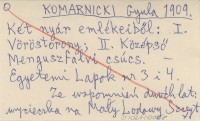 O KOMARNICKI Gyula 1909.
Két nyár emlékeiből: I.
Vöröstorony, II. Középső
Menguszfalvi csúcs. —
Egyetemi Lapok nr 3 i 4.
Ze wspomnień dwóch lat:
wycieczka na Mały Lodowy Szczyt